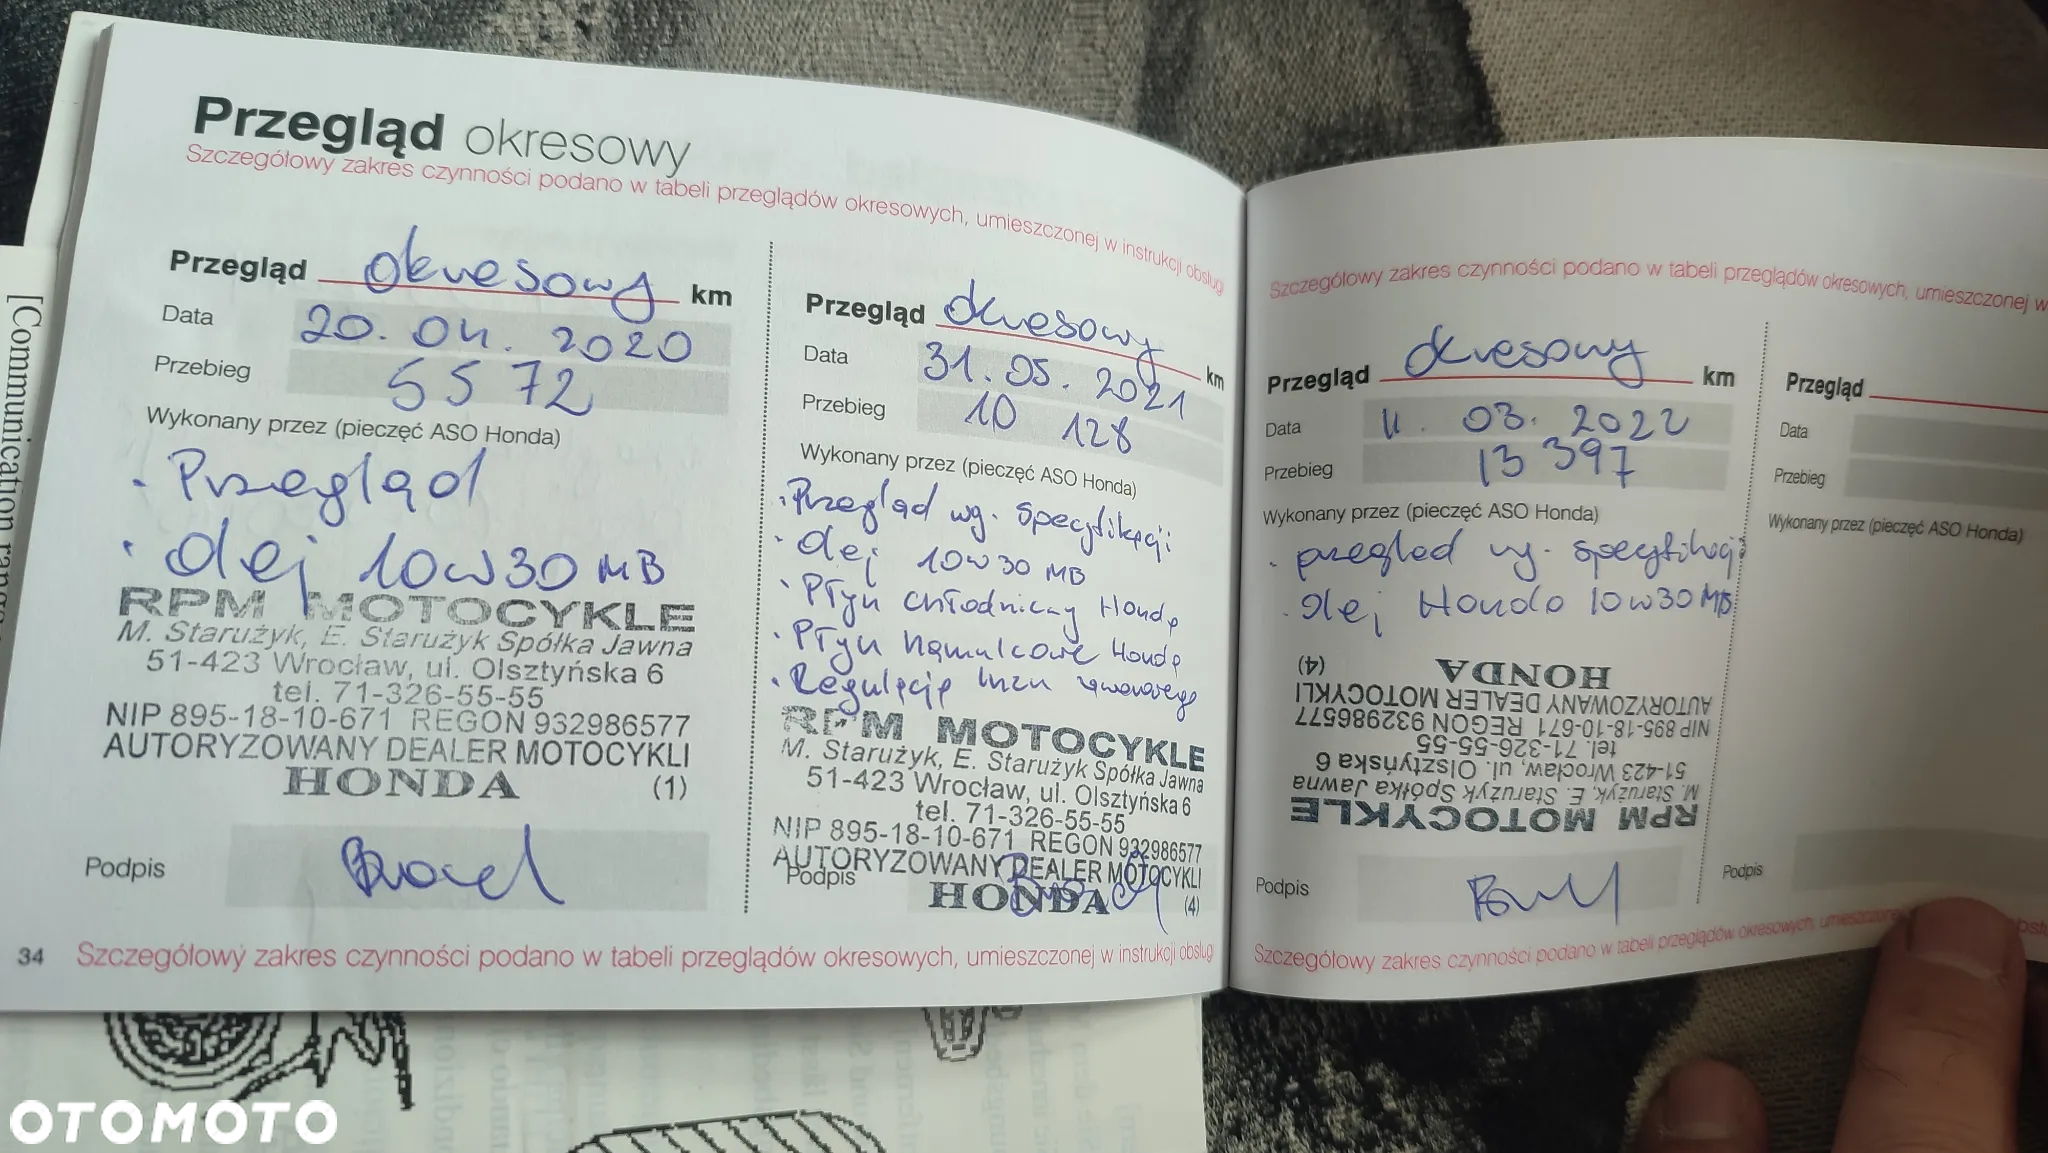 Przegląd okresowy
Szczegółowy zakres czynności podano w tabeli przeglądów okresowych, umieszczonej w instrukcji obsługi
Przegląd okresowy km
Data 20.04.2020
Przebieg 5572
Wykonany przez (pieczęć ASO Honda)
· Przegląd
· Olej 10W30 MB
RPM MOTOCYKLE
M. Starużyk, E. Starużyk Spółka Jawna
51-423 Wrocław, ul. Olsztyńska 6
tel. 71-326-55-55
NIP 895-18-10-671 REGON 932986577
AUTORYZOWANY DEALER MOTOCYKLI
HONDA (1)
Podpis
Przegląd okresowy km
Data 31.05.2021
Przebieg 10 128
Wykonany przez (pieczęć ASO Honda)
· Przegląd wg. specyfikacji
· Olej 10W30 MB
· Płyn chłodniczy Honda
· Płyn hamulcowe Honda
· Regulacja luzu zaworowego
RPM MOTOCYKLE
M. Starużyk, E. Starużyk Spółka Jawna
51-423 Wrocław, ul. Olsztyńska 6
tel. 71-326-55-55
NIP 895-18-10-671 REGON 932986577
AUTORYZOWANY DEALER MOTOCYKLI
Podpis
HONDA (4)
34 Szczegółowy zakres czynności podano w tabeli przeglądów okresowych, umieszczonej w instrukcji obsług
Szczegółowy zakres czynności podano w tabeli przeglądów okresowych, umieszczonej w
Przegląd okresowy km
Data 11.03.2022
Przebieg 13 397
Wykonany przez (pieczęć ASO Honda)
· przegląd wg. specyfikacji
· Olej Honda 10W30 MB
RPM MOTOCYKLE
M. Starużyk, E. Starużyk Spółka Jawna
51-423 Wrocław, ul. Olsztyńska 6
tel. 71-326-55-55
NIP 895-18-10-671 REGON 932986577
AUTORYZOWANY DEALER MOTOCYKLI
HONDA (4)
Podpis
Przegląd
Data
Przebieg
Wykonany przez (pieczęć ASO Honda)
Podpis
Szczegółowy zakres czynności podano w tabeli przeglądów okresowych, umieszczonej
[Communication
OTOMOTO